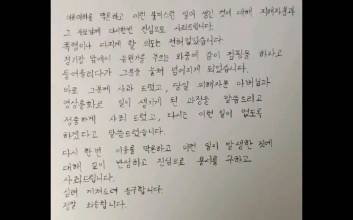 이유여하를 막론하고 이런 불미스런 일이 생긴 것에 대해 피해자분과
그 부모님께 다시한번 진심으로 사죄드립니다.
폭행이나 다치게 할 의도는 전혀없었습니다.
장기장 밖에서 응원가를 부르는 와중에 같이 점핑을 하자고
들어올리다가 그분을 놓쳐 넘어지게 되었습니다.
바로 그분께 사과 드렸고, 당일 피해자분 아버님과
영상통화로 일이 생기게 된 과정을 말씀드리고
정중하게 사죄 드렸고, 다시는 이런 일이 없도록
하겠다고 말씀드렸습니다.
다시 한번 이유를 막론하고 이런 일이 발생한 것에
대해 깊이 반성하고 진심으로 용서를 구하고,
사죄드립니다.
심려 끼쳐드려 송구합니다.
정말 죄송합니다.